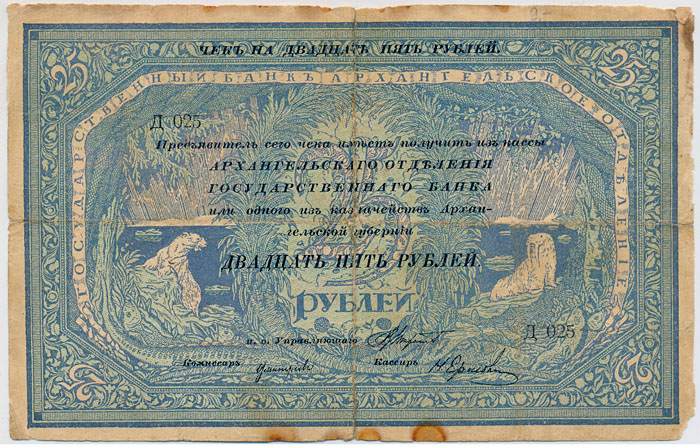 ЧЕКЪ НА ДВАДЦАТЬ ПЯТЬ РУБЛЕЙ.
25 25
ГОСУДАРСТВЕННЫЙ БАНКЪ АРХАНГЕЛЬСКОЕ ОТДѢЛЕНІЕ
Д 025
Предъявитель сего чека имѣетъ получить изъ кассы
АРХАНГЕЛЬСКАГО ОТДѢЛЕНІЯ
ГОСУДАРСТВЕННАГО БАНКА
или одного изъ казначействъ Архан-
гельской губерніи
25
ДВАДЦАТЬ ПЯТЬ РУБЛЕЙ
РУБЛЕЙ
Д 025
и. о. Управляющаго
Комиссаръ Кассиръ
25 25